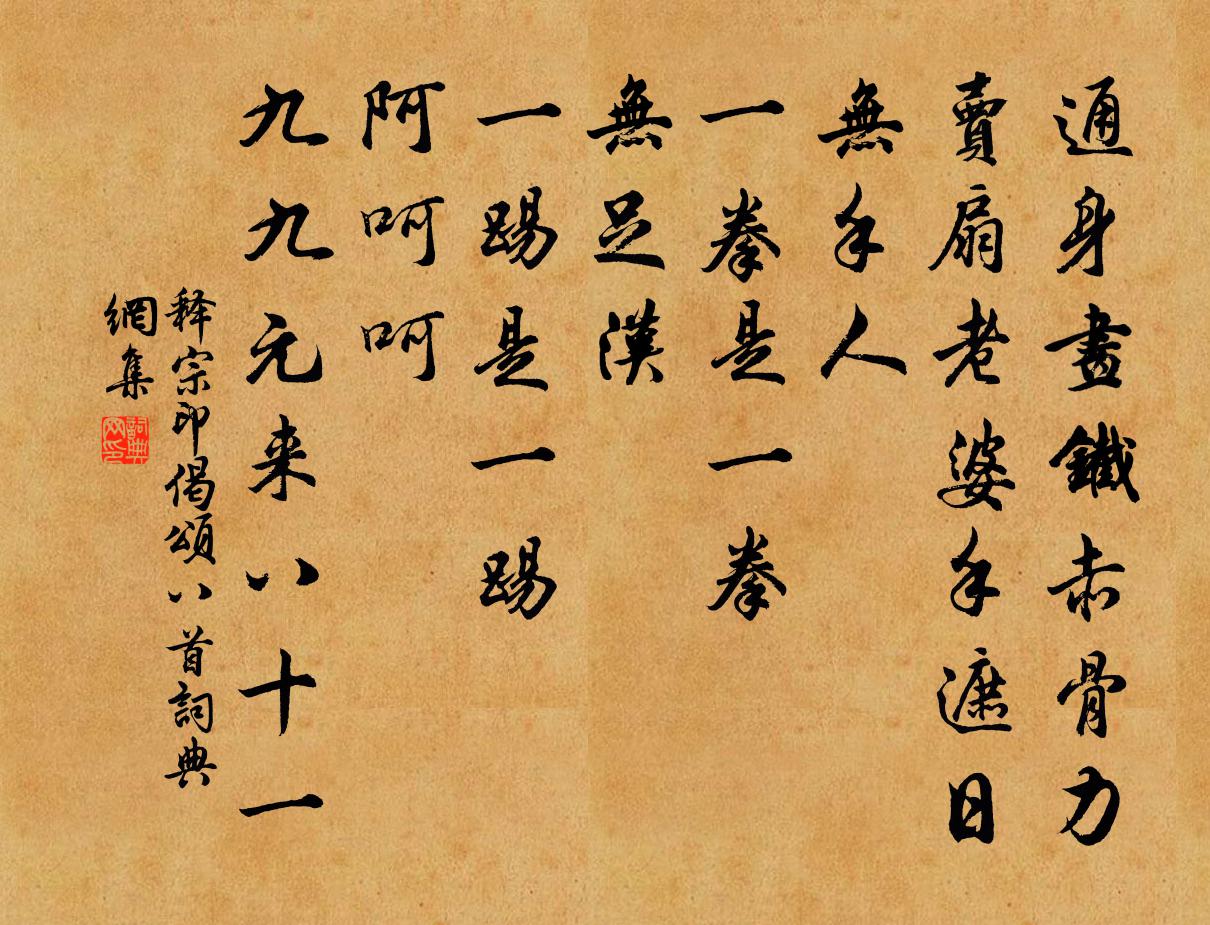 通身畫鐵赤骨力
賣扇老婆手遮日
無手人
一拳是一拳
無足漢
一踢是一踢
阿呵呵
九九元来八十一
释宗印偈頌八首詞典
網集
詞典
网印